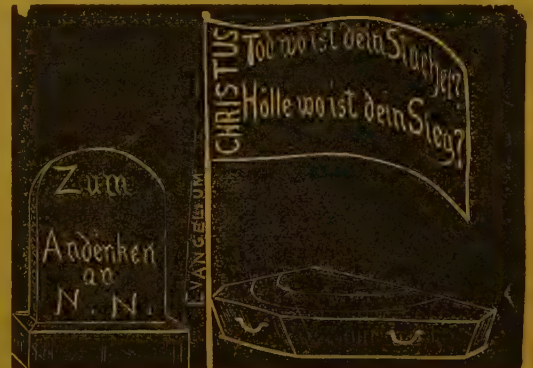 Zum
Andenken
an
N. N.
EVANGELIUM
CHRISTUS
Tod wo ist dein Stachel?
Hölle wo ist dein Sieg?